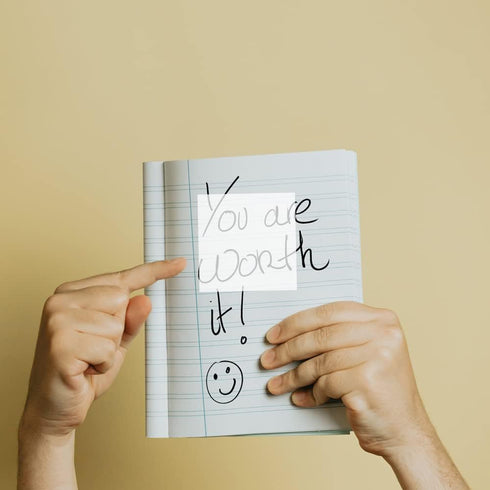 You are
worth
it!